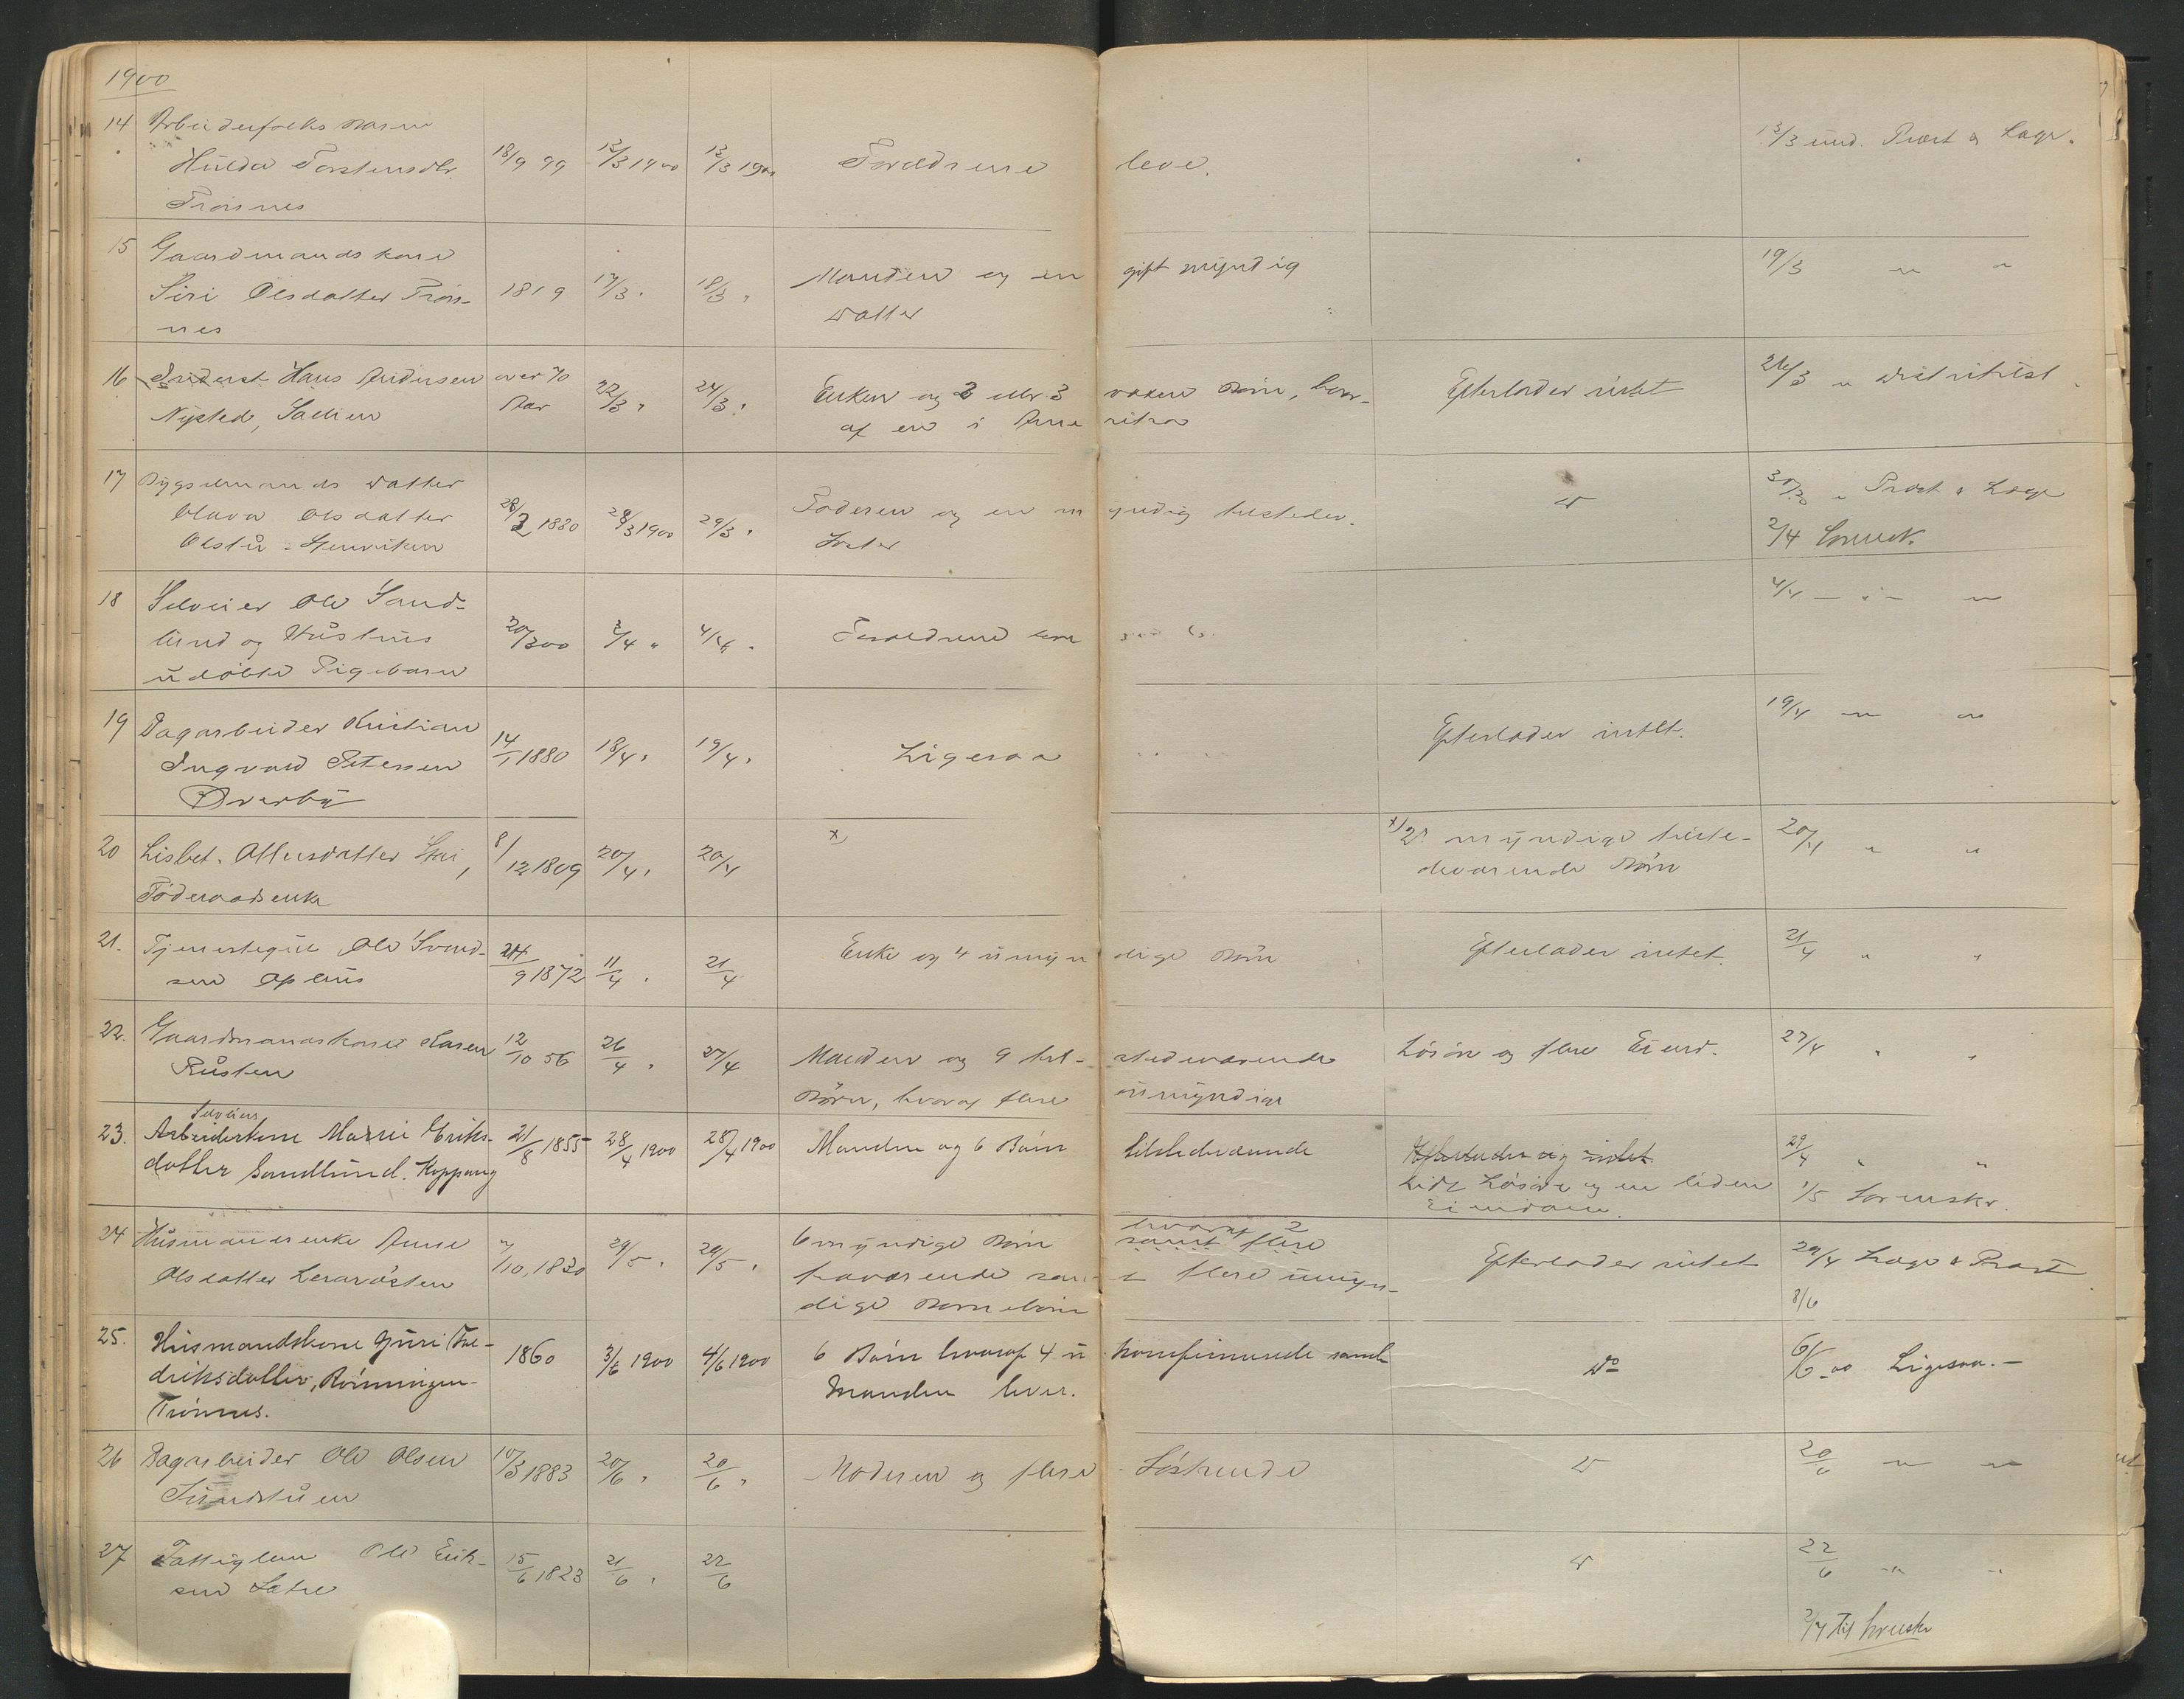 1900
14 Arbeiderfolks Barn
Hulda Torstensdtr.
Trønnes
18/9 99
12/3 1900
13/3 1900
Forældrene leve.
13/3 und. Præst & Læge.
15 Gaardmandskone
Siri Olsdatter Trøn-
nes
1819
17/3 "
18/3 "
Manden og en gift myndig
Datter
19/3 " "
16 Inderst Hans Andersen
Nysted,
over 70
Aar
22/3 "
24/3 "
Enken og 2 eller 3 voxne Børn, hvor-
af en i Amerika
Efterlader intet
26/3 " Distriktsl.
17 Bygselmands Datter
Olava Olsdatter
28/3 1880
28/3 1900
29/3 "
Faderen og en myndig tilstedev.
Do
30/3 " Præst & Læge
2/4 Sorensk.
18 Selveier Ole Sand-
lund og Hustrus
udøbte Pigebarn
30/3 00
3/4 "
4/4 "
Forældrene leve
4/4 — " — "
19 Dagarbeider Kristian
Ingvald Petersen
Øverby
14/1 1880
18/4 "
19/4 "
Ligesaa
Efterlader intet.
19/4 " "
20 Lisbet Ottersdatter
Føderaadsenke
8/12 1809
20/4 "
20/4
x)
x) 2 myndige tilste-
deværende Børn
20/4 " "
21. Tjenestegut Ole Svend-
sen Ophus
24/9 1872
11/4 "
21/4
Enke og 4 umyndige Børn
Efterlader intet.
21/4 " "
22. Gaardmandskone Karen
Rusten
12/10 56
26/4 "
27/4
Manden og 9 tilstedeværende
Børn, hvoraf flere umyndige
Løsøre og flere Eiend.
27/4 " "
Selveiers
23. Arbeiderkone Marie Eriks-
datter Sandlund. Koppang
21/8 1855
28/4 1900
28/4 1900
Manden og 6 Børn tilstedeværende
Efterlader sig intet
Lidt Løsøre og en liden
Eiendom.
29/4 " "
1/5 Sorenskr.
24 Husmandsenke Anne
Olsdatter
7/10 1820
29/5 "
29/5 "
6 myndige Børn hvoraf 2
samt flere
fraværende samt flere umyn-
dige Børnebørn
Efterlader intet
29/4 Læge & Præst
8/6
25. Husmandskone Guri Fre-
driksdatter, Rønningen
Trønnes.
1860
3/6 1900
4/6 1900
6 Børn hvoraf 4 ukonfirmerede samt
Manden lever.
Do
6/6 00 Ligesaa. —
26 Dagarbeider Ole Olsen
Sundstuen
10/3 1883
20/6 "
20/6 "
Moderen og flere Søskende
Do
20/6 " "
27 Fattiglem Ole Erik-
sen Sætre
15/6 1823
21/6 "
22/6
Do
22/6 " "
2/7 til Sorenskr